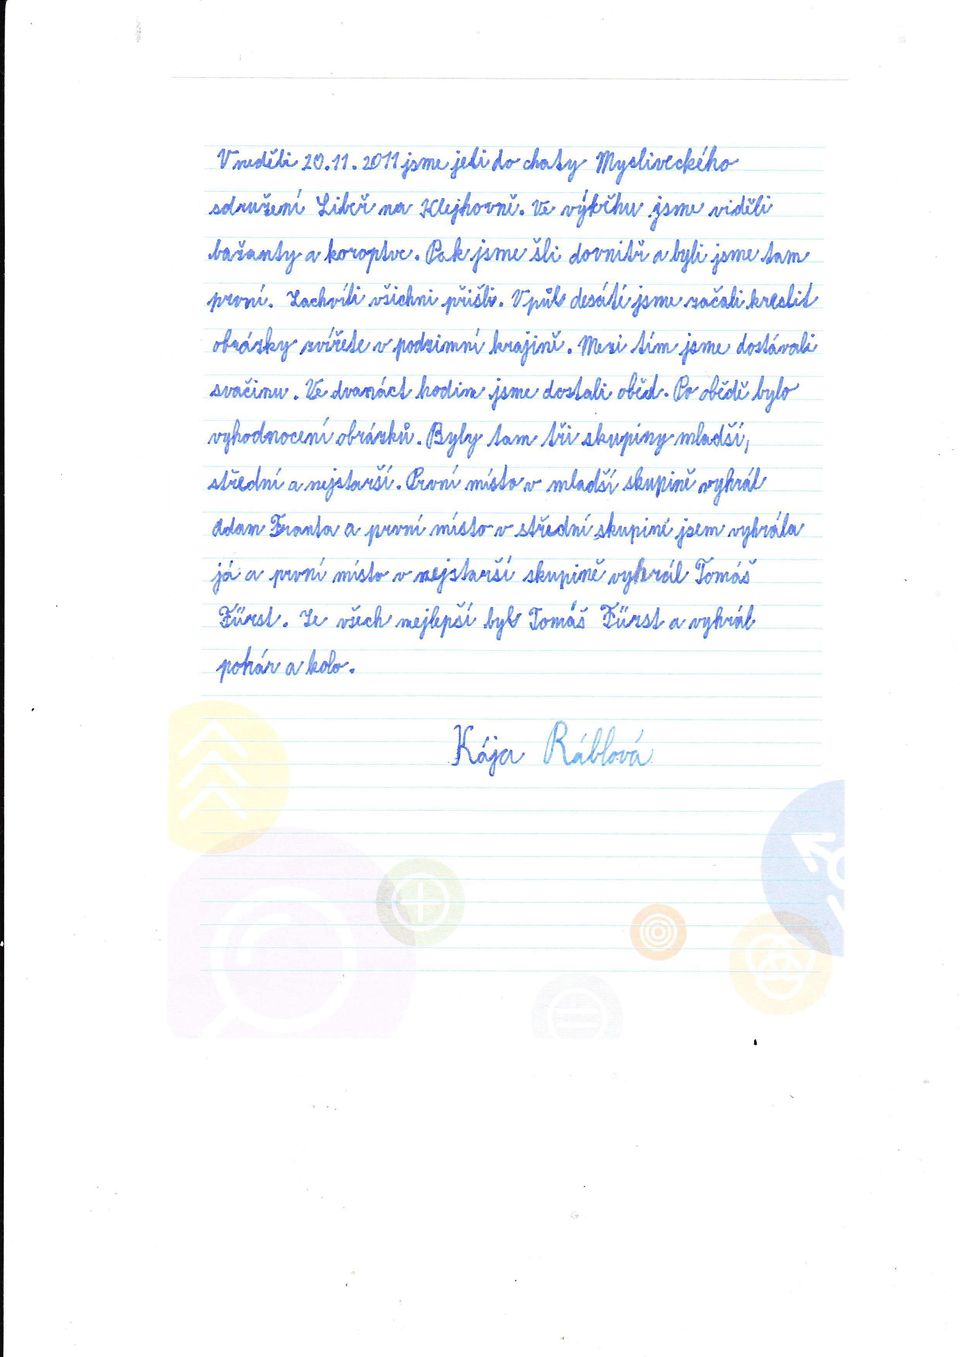 V neděli 20.11. 2011 jsme jeli do chaty Mysliveckého
sdružení Libeř na Klejhovně. Ve výběhu jsme viděli
bažanty a koroptve. Pak jsme šli dovnitř a byli jsme tam
první. Zachvíli všichni přišli. V půl desáté jsme začali kreslit
obrázky zvířete v podzimní krajině. Mezi tím jsme dostávali
svačinu. Ve dvanáct hodin jsme dostali oběd. Po obědě bylo
vyhodnocení obrázků. Byly tam tři skupiny mladší,
střední a nejstarší. První místo v mladší skupině vyhrál
Adam Franta a první místo v střední skupině jsem vyhrála
já a první místo v nejstarší skupině vyhrál Tomáš
Fürst. Ze všech nejlepší byl Tomáš Fürst a vyhrál
pohár a kolo.
Kája Ráblová